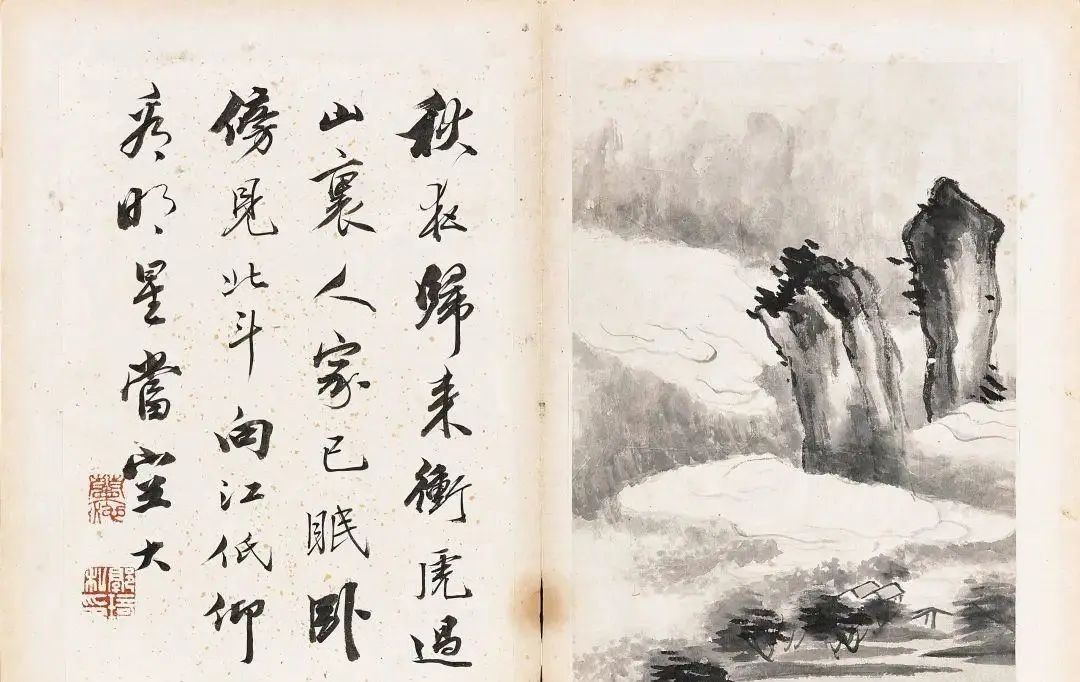 秋夜歸来衝虎過
山裏人家已眠卧
傍見北斗向江低仰
看明星當空大